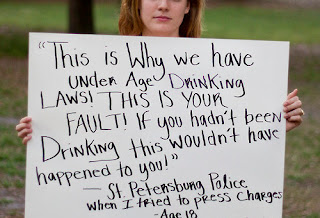 "This is Why we have
UNDER Age DRINKING
LAWS! THIS IS YOUR
FAULT! If you hadn't been
Drinking this wouldn't have
happened to you!"
— St. Petersburg Police
when I tried to press charges
-Age 18